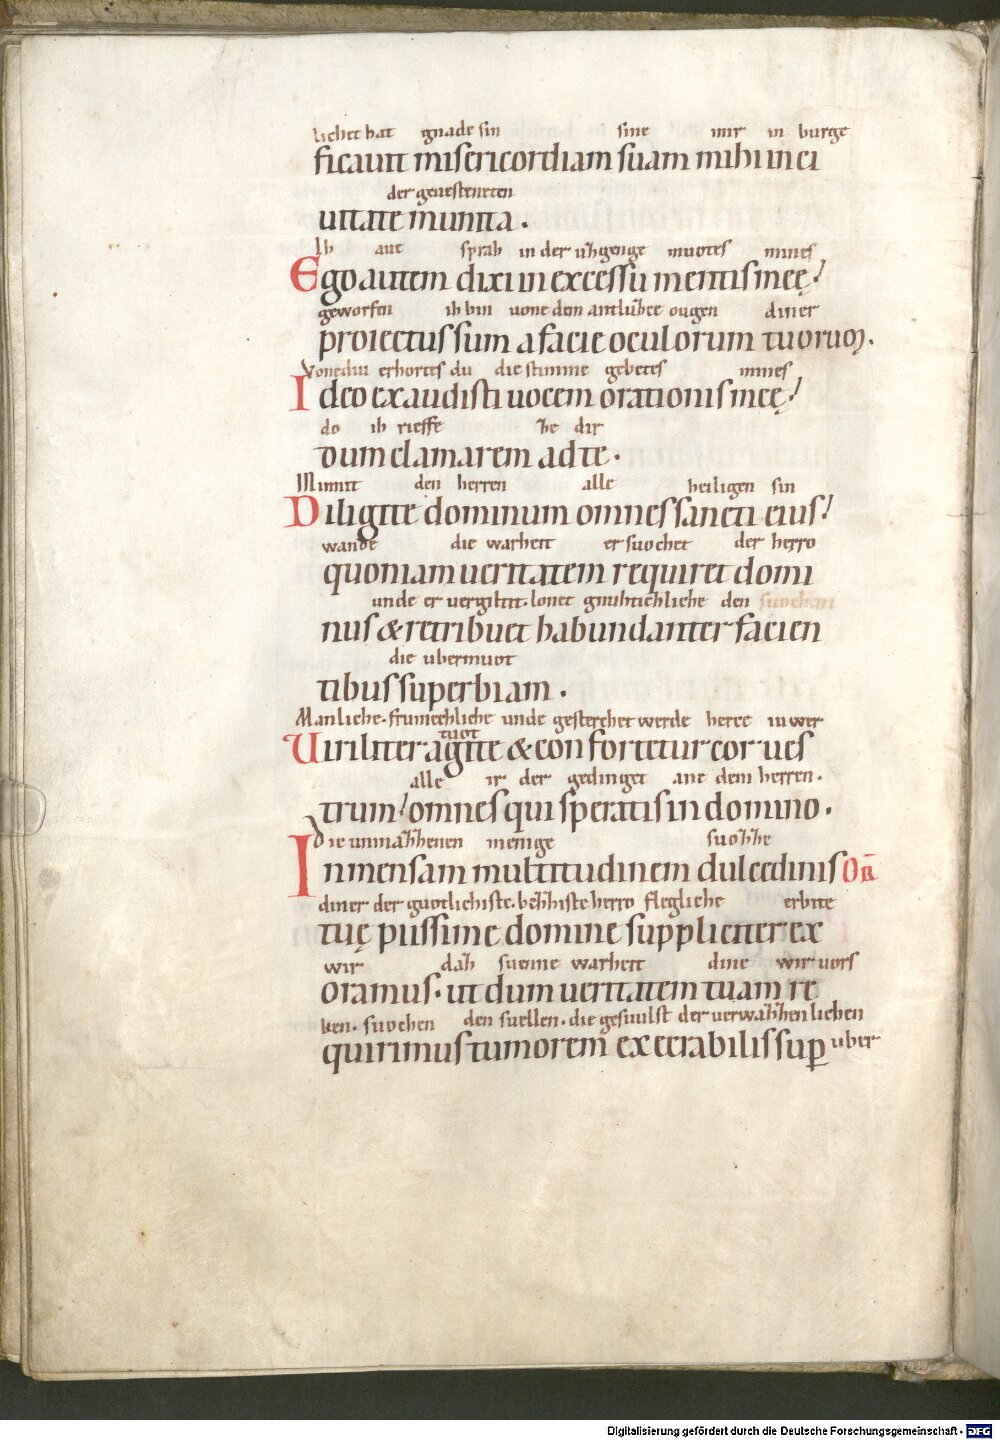 lichet hat gnade sin sine mir in burge
ficauit misericordiam suam mihi in ci
der geuesteneten
uitate munita.
Ih aue sprah in der uzgenge muotes mines
Ego autem dixi in excessu mentis meę:
geworfen ih bin uone dem antluzce ougen diner
proiectus sum a facie oculorum tuorum.
Vonediu erhortes du die stimme gebetes mines
Ideo exaudisti uocem orationis meę:
do ih rieffe ze dir
dum clamarem ad te.
Minnit den herren alle heiligen sin
Diligite dominum omnes sancti eius:
wande die warheit er suochet der herro
quoniam ueritatem requiret domi
unde er vergiltit. lonet gnuhtichliche den
nus & retribuet habundanter facien
die ubermuot
tibus superbiam.
Manliche. frumechliche unde gesterchet werde herce iuwer
tuot
Uiriliter agite & confortetur cor ues
alle ir der gedinget ane dem herren.
trum: omnes qui speratis in domino.
Die unmazzenen menige suozze
Inmensam multitudinem dulcedinis OR
diner der guotlichiste. bezziste herro flegliche erbite
tuę piissime domine suppliciter ex
wir daz suenne warheit dine wir uors
oramus. ut dum ueritatem tuam re
ken. suochen den suellen. die gesuulst der uerwazzenlichen
quirimus tumorem execrabilis sup uber
Digitalisierung gefördert durch die Deutsche Forschungsgemeinschaft - DFG